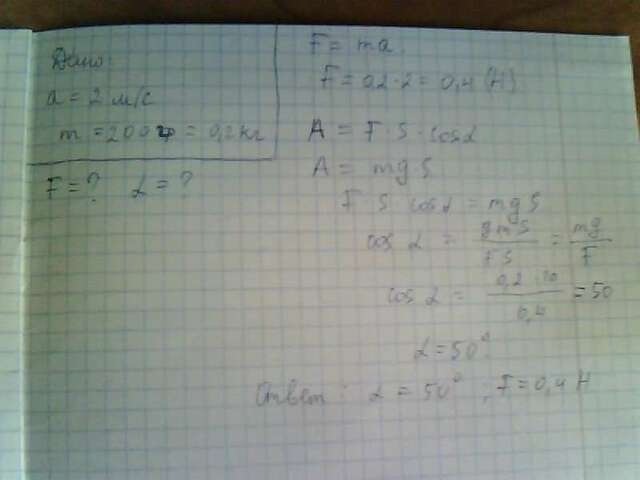 Дано:
a = 2 м/с
m = 200 г = 0,2 кг
F = ? α = ?
F = ma.
F = 0,2 · 2 = 0,4 (Н)
A = F · S · cosα
A = mg S
F S cosα = mg S
cos α = gmS / FS = mg / F
cos α = 0,2 · 10 / 0,4 = 50
α = 50°
Ответ: α = 50° ; F = 0,4 Н